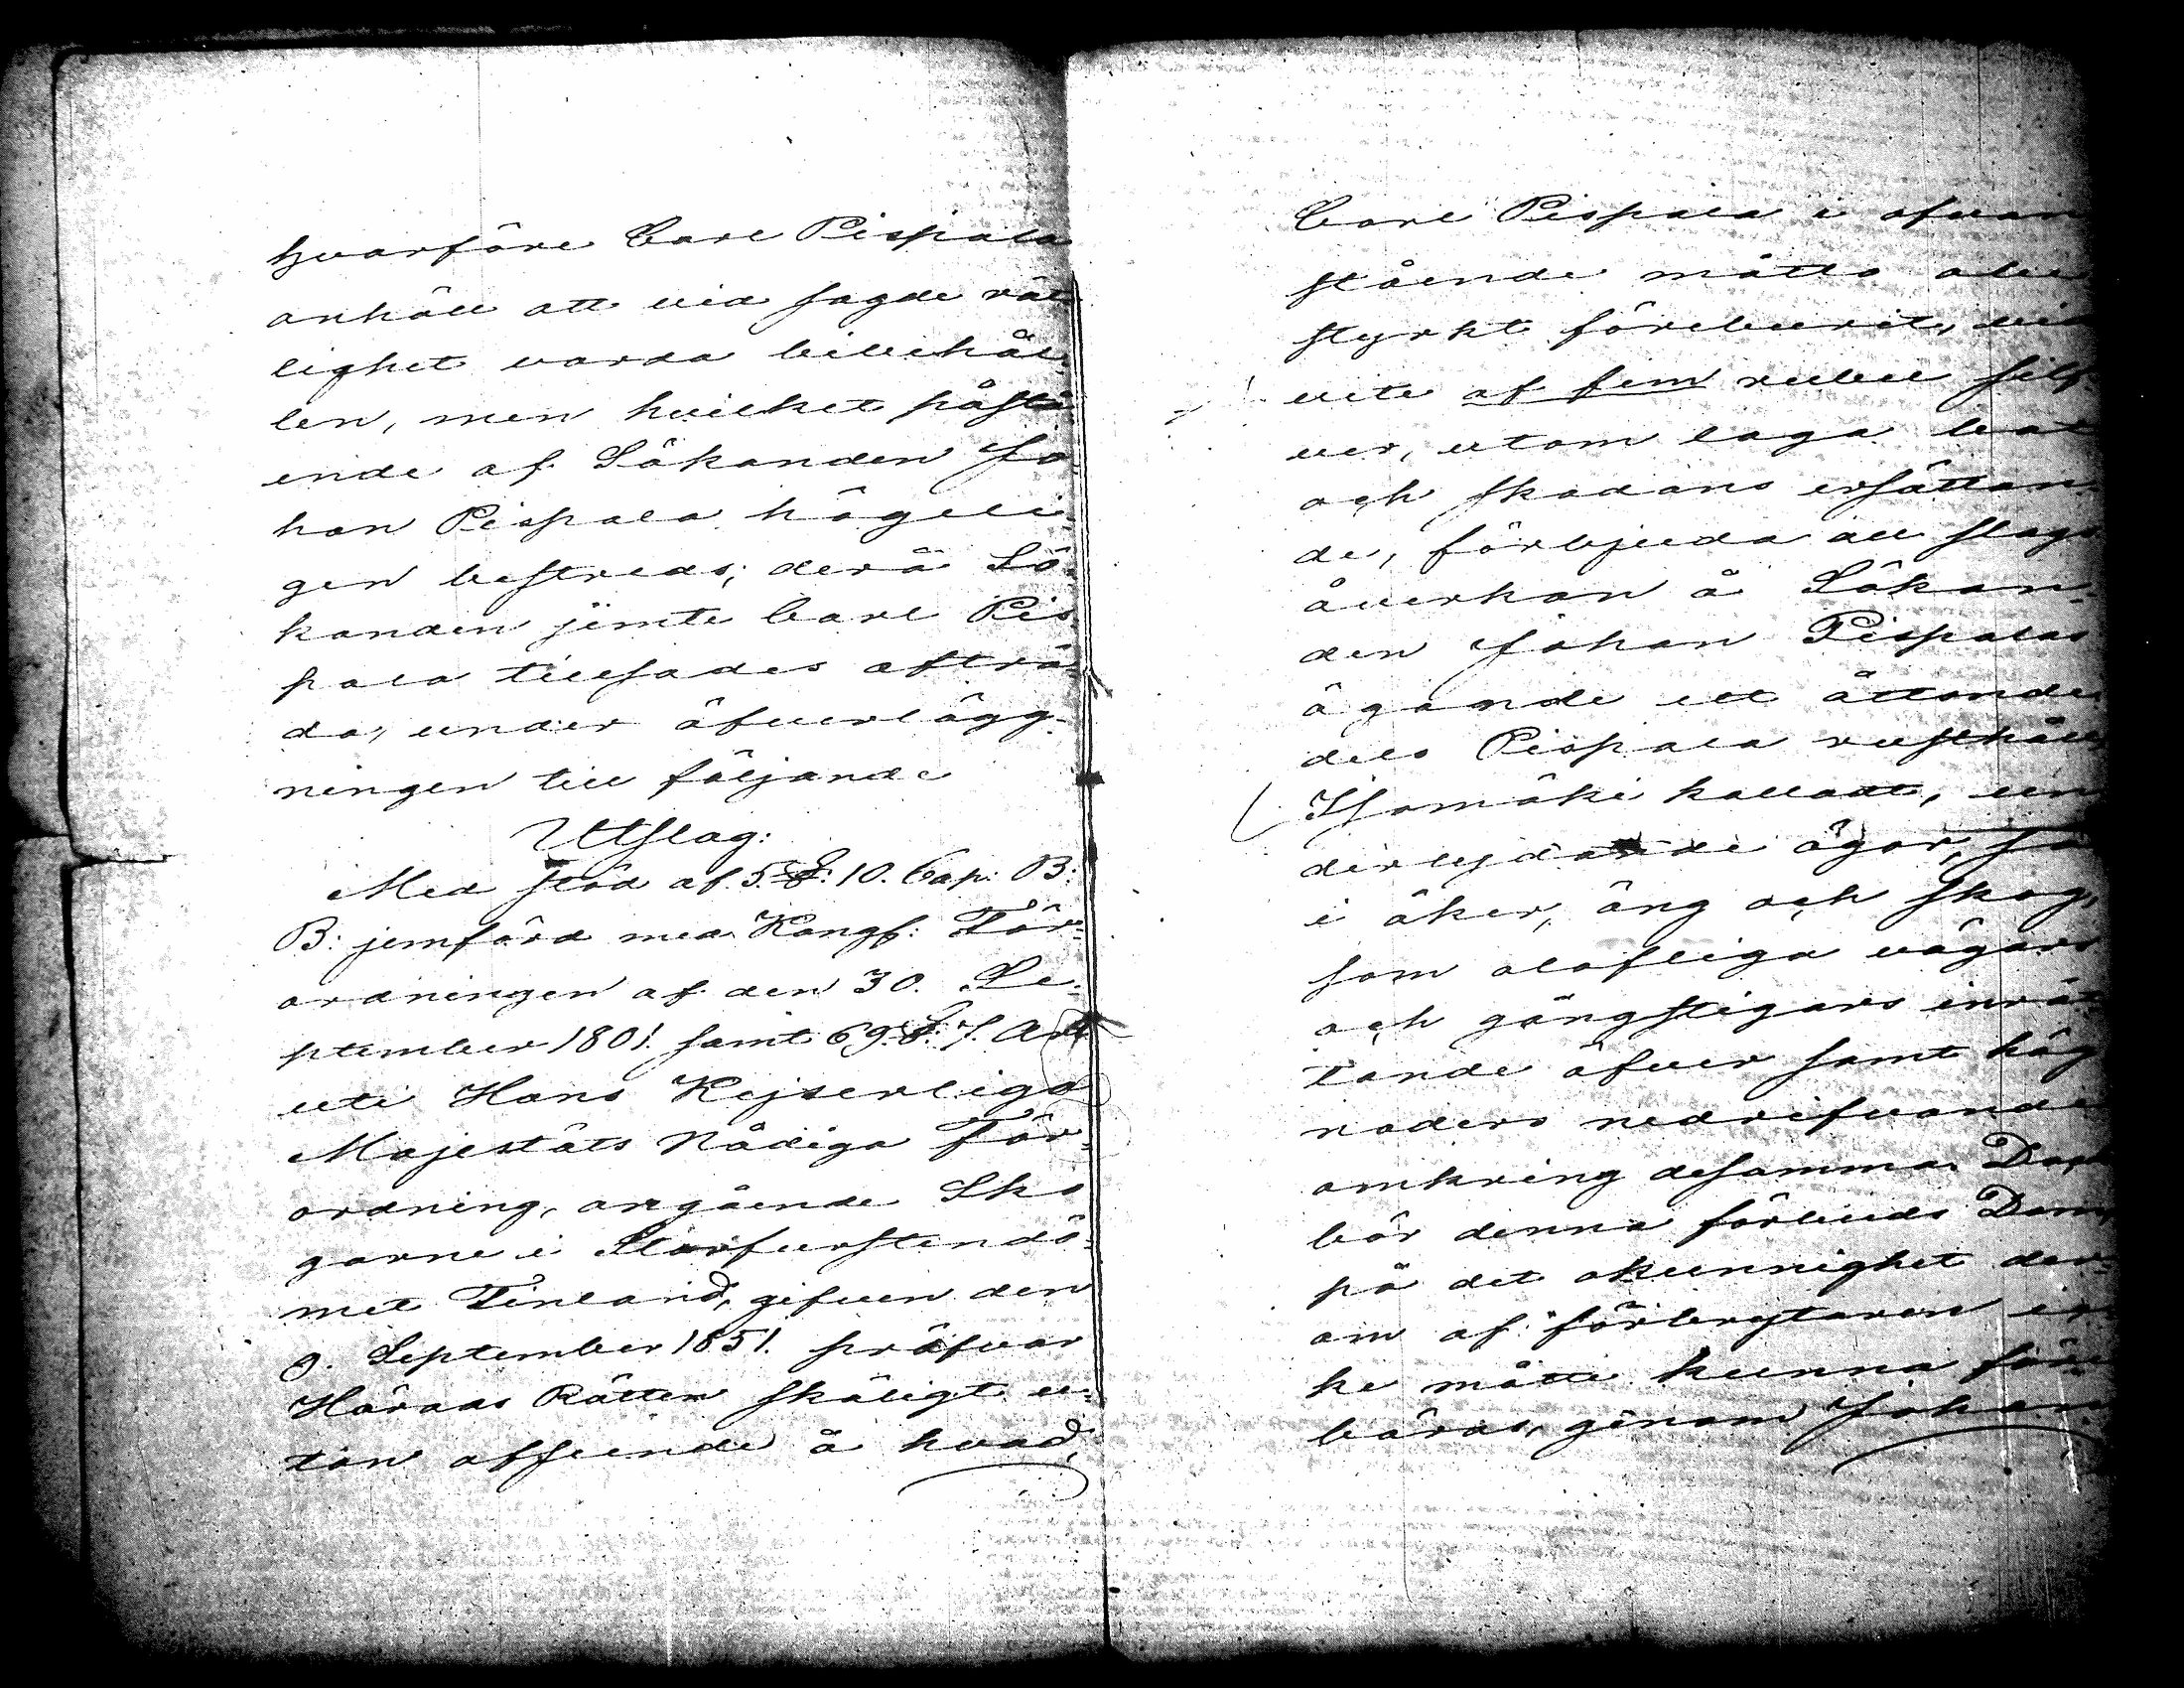 hvarföre Carl Pispala
anhöll att vid sagde rät-
tighet varda bibehål-
len, men hvilket påstå-
ende af Sökanden Jo-
han Pispala högeli-
gen bestreds; derå Sö-
kanden jemte Carl Pis-
pala tillsades afträ-
da, under öfverlägg-
ningen till följande
Utslag:
Med stöd af 5. §. 10. Cap: B:
B: jemförd med Kongl: För-
ordningen af den 30. Se-
ptember 1801. samt 69. §. 7. Art
uti Hans Kejserliga
Majestäts Nådiga För-
ordning, angående Sko
garne i Storfurstendö-
met Finland, gifven den
9. September 1851. pröfvar
Härads Rätten skäligt u-
tan afseende å hvad
Carl Pispala i ofvan
stående måtto obe
styrkt föreburit, vid
vite af fem rubel silf-
ver, utom laga bot
och skadans ersättan-
de, förbjuda all slags
åverkan å Sökan-
den Johan Pispalas
ägande ett åttonde
dels Pispala rusthåll
Isomäki kalladt, un
derlydande ägor, så
i åker, äng och skog,
som olofliga vägars
och gångstigars inrät
tande öfver samt häg
naders nedrifvande
omkring desamma. Dock
bör denna förbuds Dom,
på det okunnighet der-
om af förbrytaren ic-
ke måtte kunna före
bäras, genom Johan